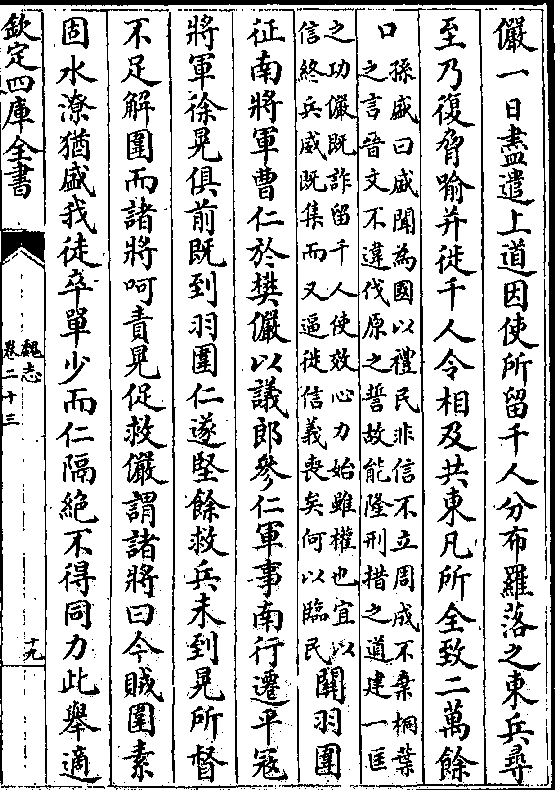 儼一日盡遣上道因使所留千人分布羅落之東兵尋
至乃復脅喻并徙千人令相及共東凡所全致二萬餘
口孫盛曰盛聞為國以禮民非信不立周成不棄桐葉
之言晉文不違伐原之誓故能隆刑措之道建一匡
之功儼既詐留千人使效心力始雖權也宜以
信終兵威既集而又逼徙信義喪矣何以臨民關羽圍
征南將軍曹仁於樊儼以議郎參仁軍事南行遷平冦
將軍徐晃俱前既到羽圍仁遂堅餘救兵未到晃所督
不足解圍而諸將呵責晃促救儼謂諸將曰今賊圍素
固水潦猶盛我徒卒單少而仁隔絶不得同力此舉適
欽定四庫全書
魏志
卷二十三
十九